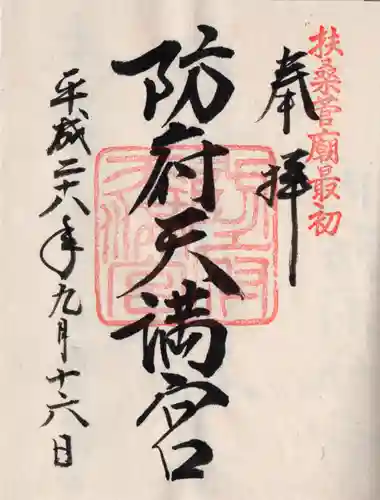 扶桑菅廟最初
奉拝
防府天満宮
平成二十八年九月十六日
防府天満宮